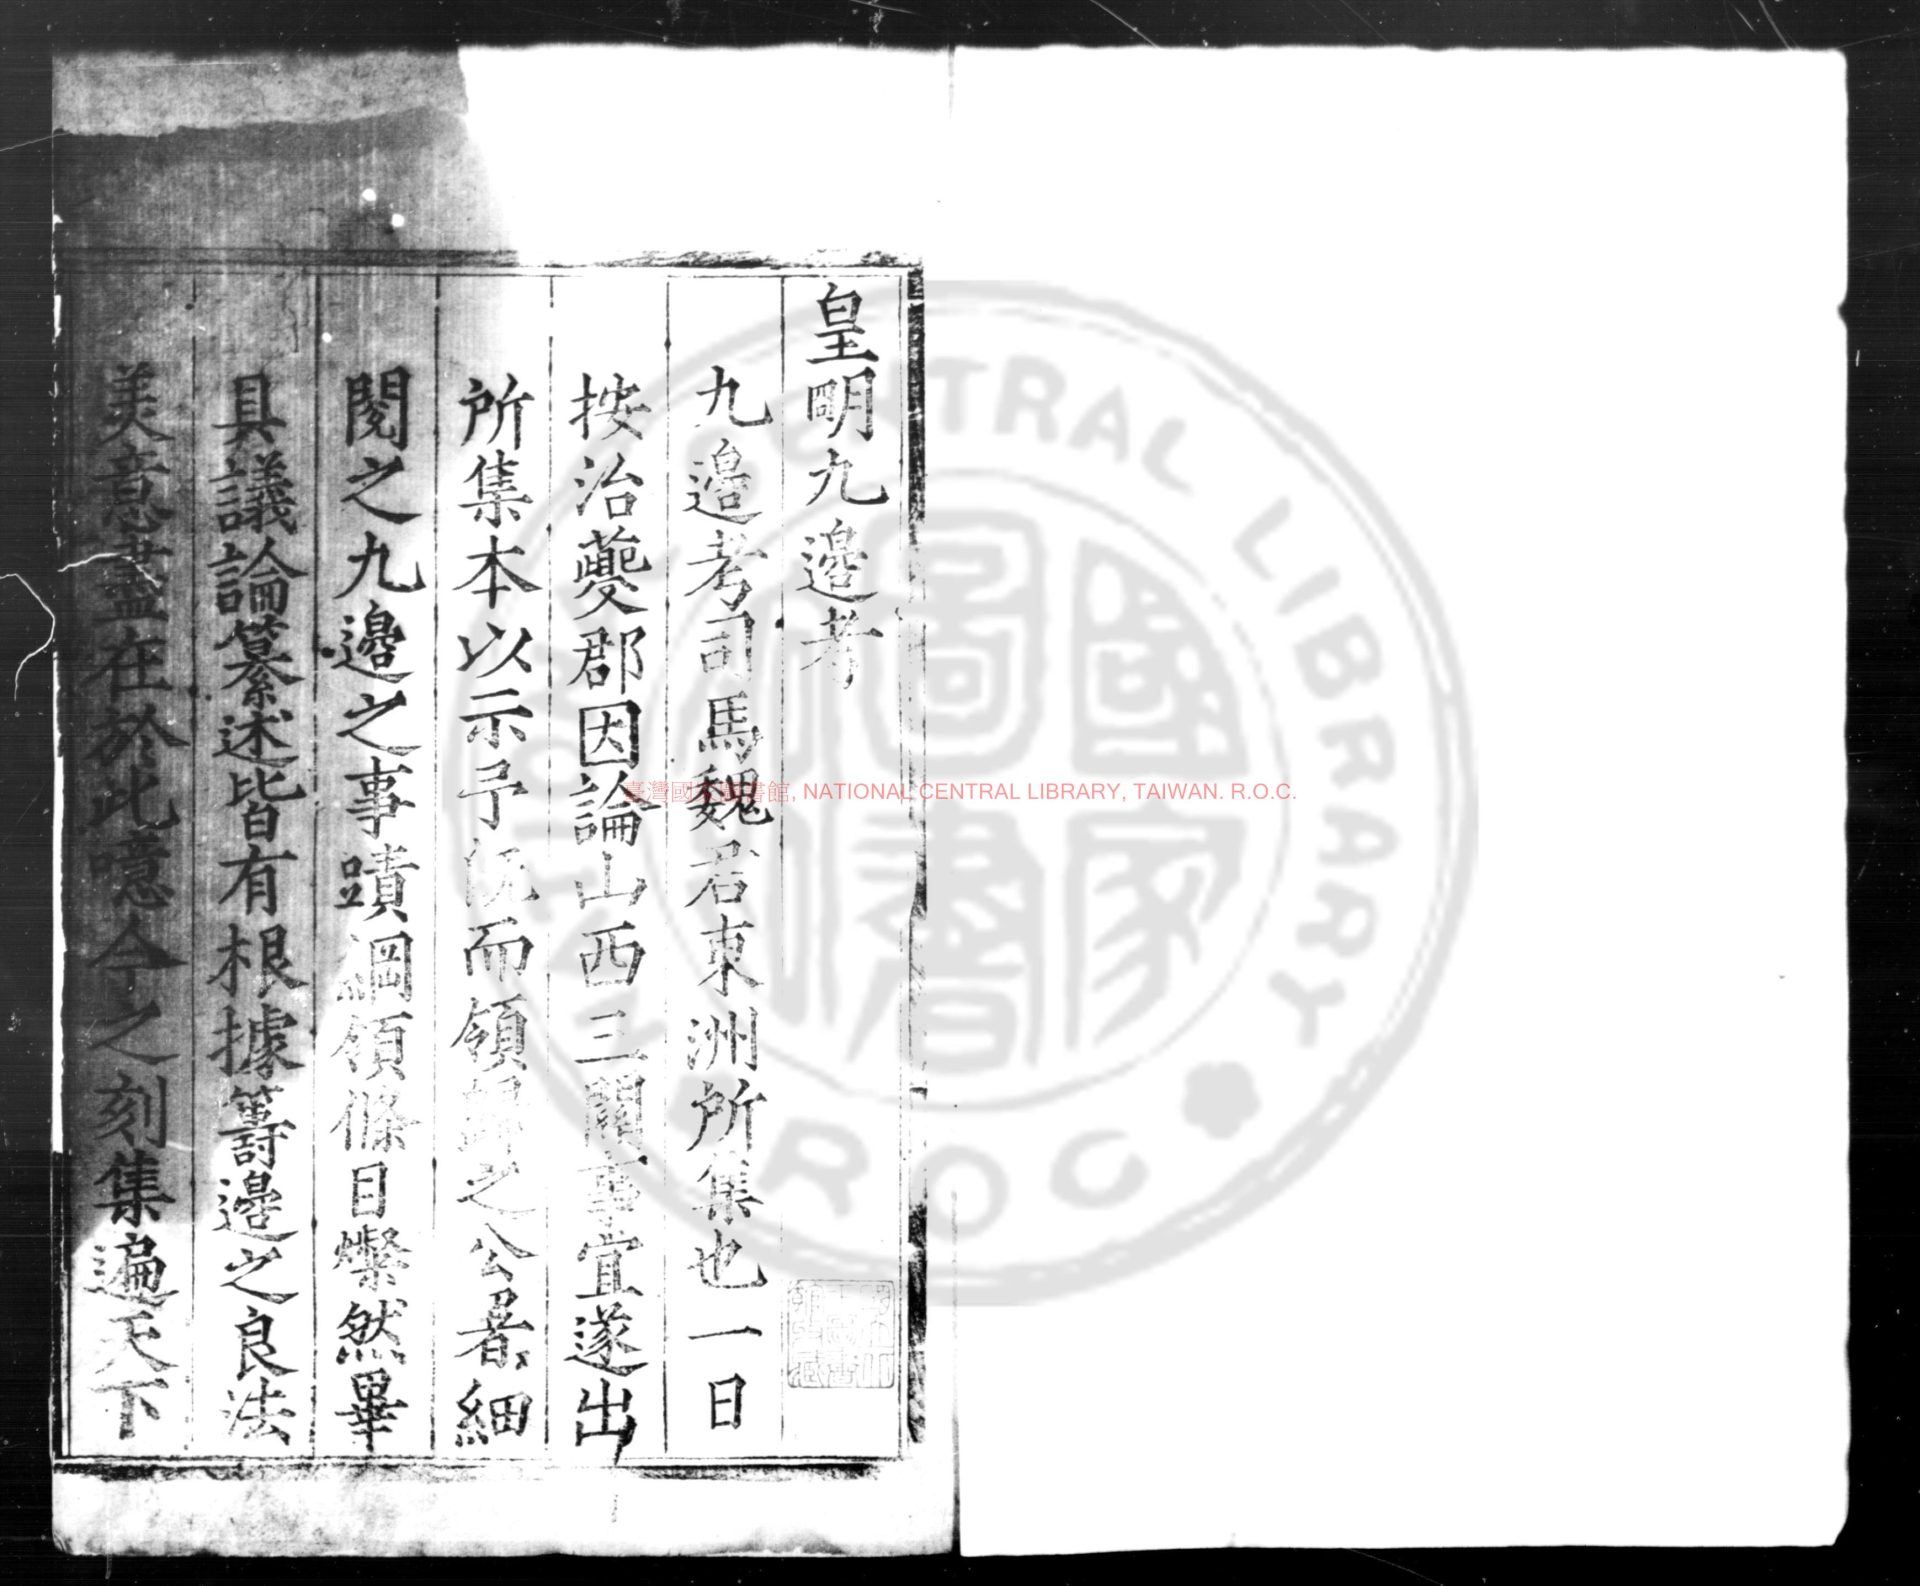 皇明九邊考
九邊考司馬魏君東洲所集也一日
按治夔郡因論山西三關事宜遂出
所集本以示予既而領歸之公暑細
閱之九邊之事蹟綱領條目燦然畢
具議論纂述皆有根據籌邊之良法
美意盡在於此噫今之刻集遍天下
臺灣國家圖書館, NATIONAL CENTRAL LIBRARY, TAIWAN. R.O.C.
國家圖書
CENTRAL LIBRARY
R.O.C